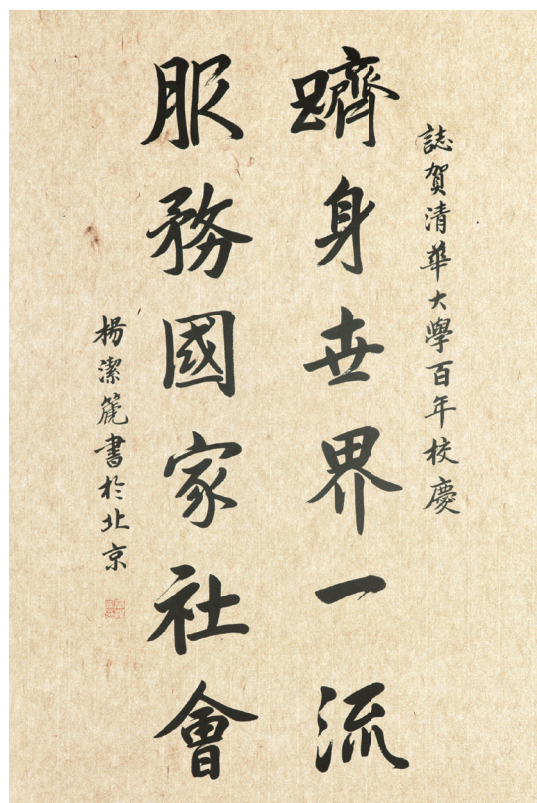 誌賀清華大學百年校慶
躋身世界一流
服務國家社會
楊潔篪書於北京